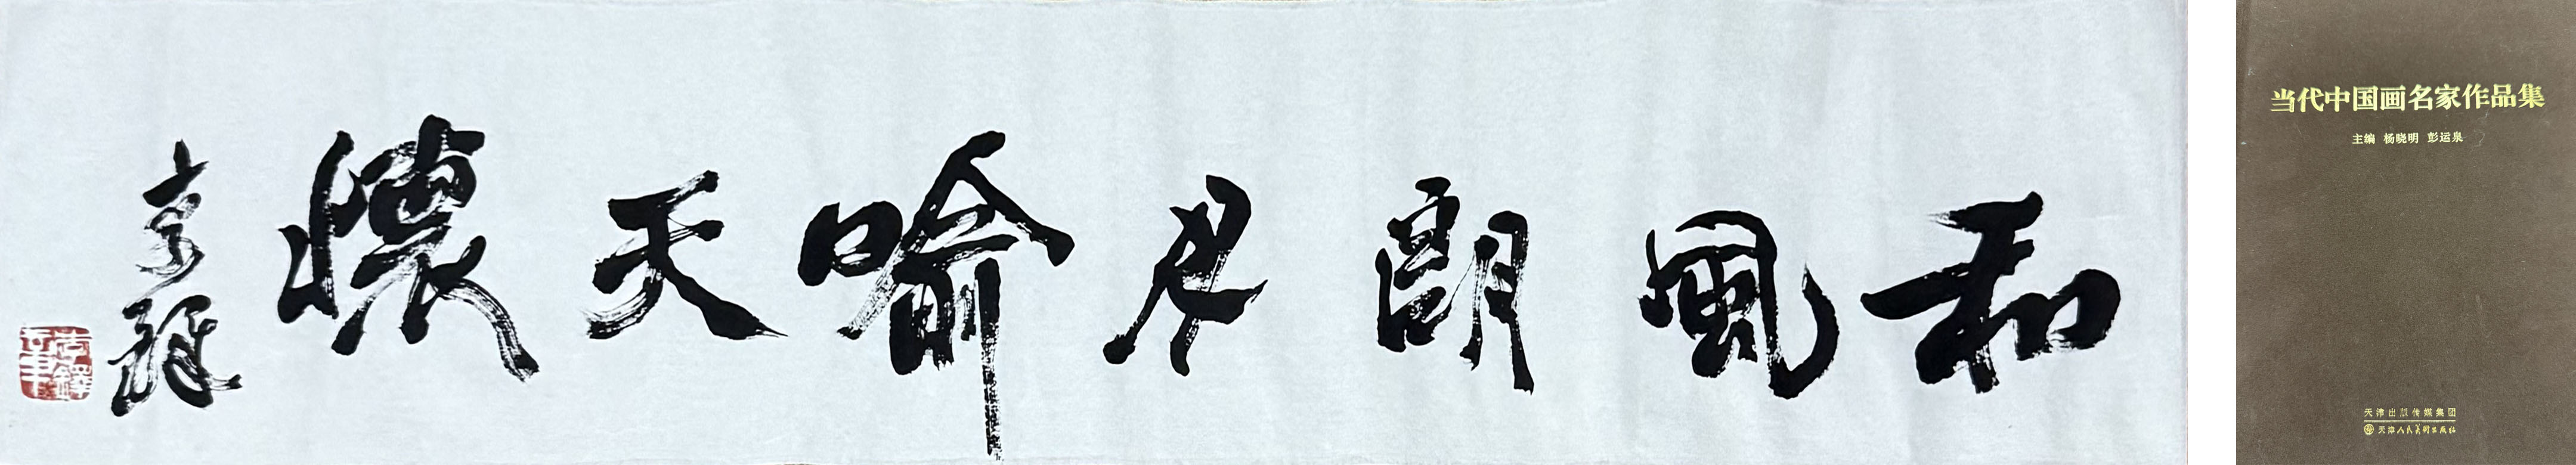 和風朗月喻天懷
李鐸
当代中国画名家作品集
主编 杨晓明 彭运泉
天津出版传媒集团
天津人民美術出版社